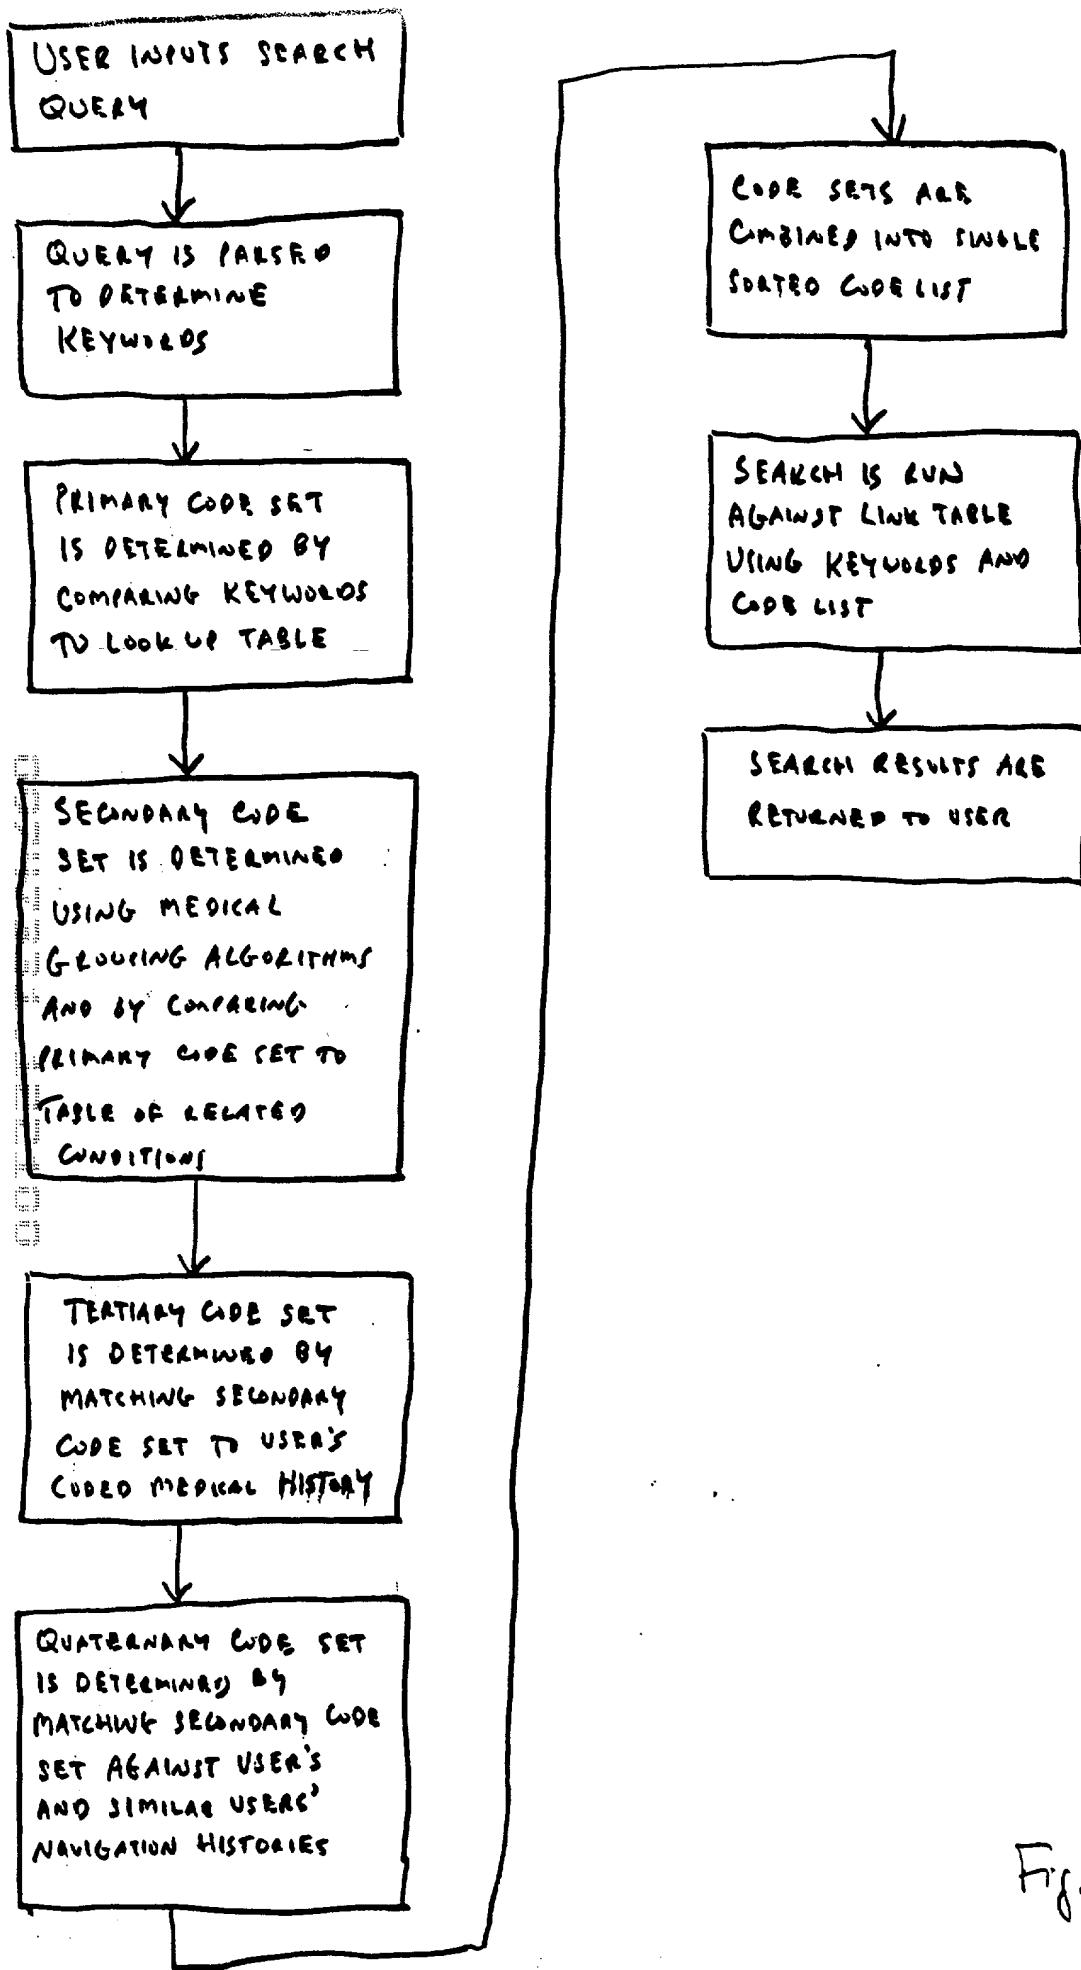 USER INPUTS SEARCH
QUERY
QUERY IS PARSED
TO DETERMINE
KEYWORDS
PRIMARY CODE SET
IS DETERMINED BY
COMPARING KEYWORDS
TO LOOK UP TABLE
SECONDARY CODE
SET IS DETERMINED
USING MEDICAL
GROUPING ALGORITHMS
AND BY COMPARING
PRIMARY CODE SET TO
TABLE OF RELATED
CONDITIONS
TERTIARY CODE SET
IS DETERMINED BY
MATCHING SECONDARY
CODE SET TO USER'S
CODED MEDICAL HISTORY
QUATERNARY CODE SET
IS DETERMINED BY
MATCHING SECONDARY CODE
SET AGAINST USER'S
AND SIMILAR USERS'
NAVIGATION HISTORIES
CODE SETS ARE
COMBINED INTO SINGLE
SORTED CODE LIST
SEARCH IS RUN
AGAINST LINK TABLE
USING KEYWORDS AND
CODE LIST
SEARCH RESULTS ARE
RETURNED TO USER
Fig.